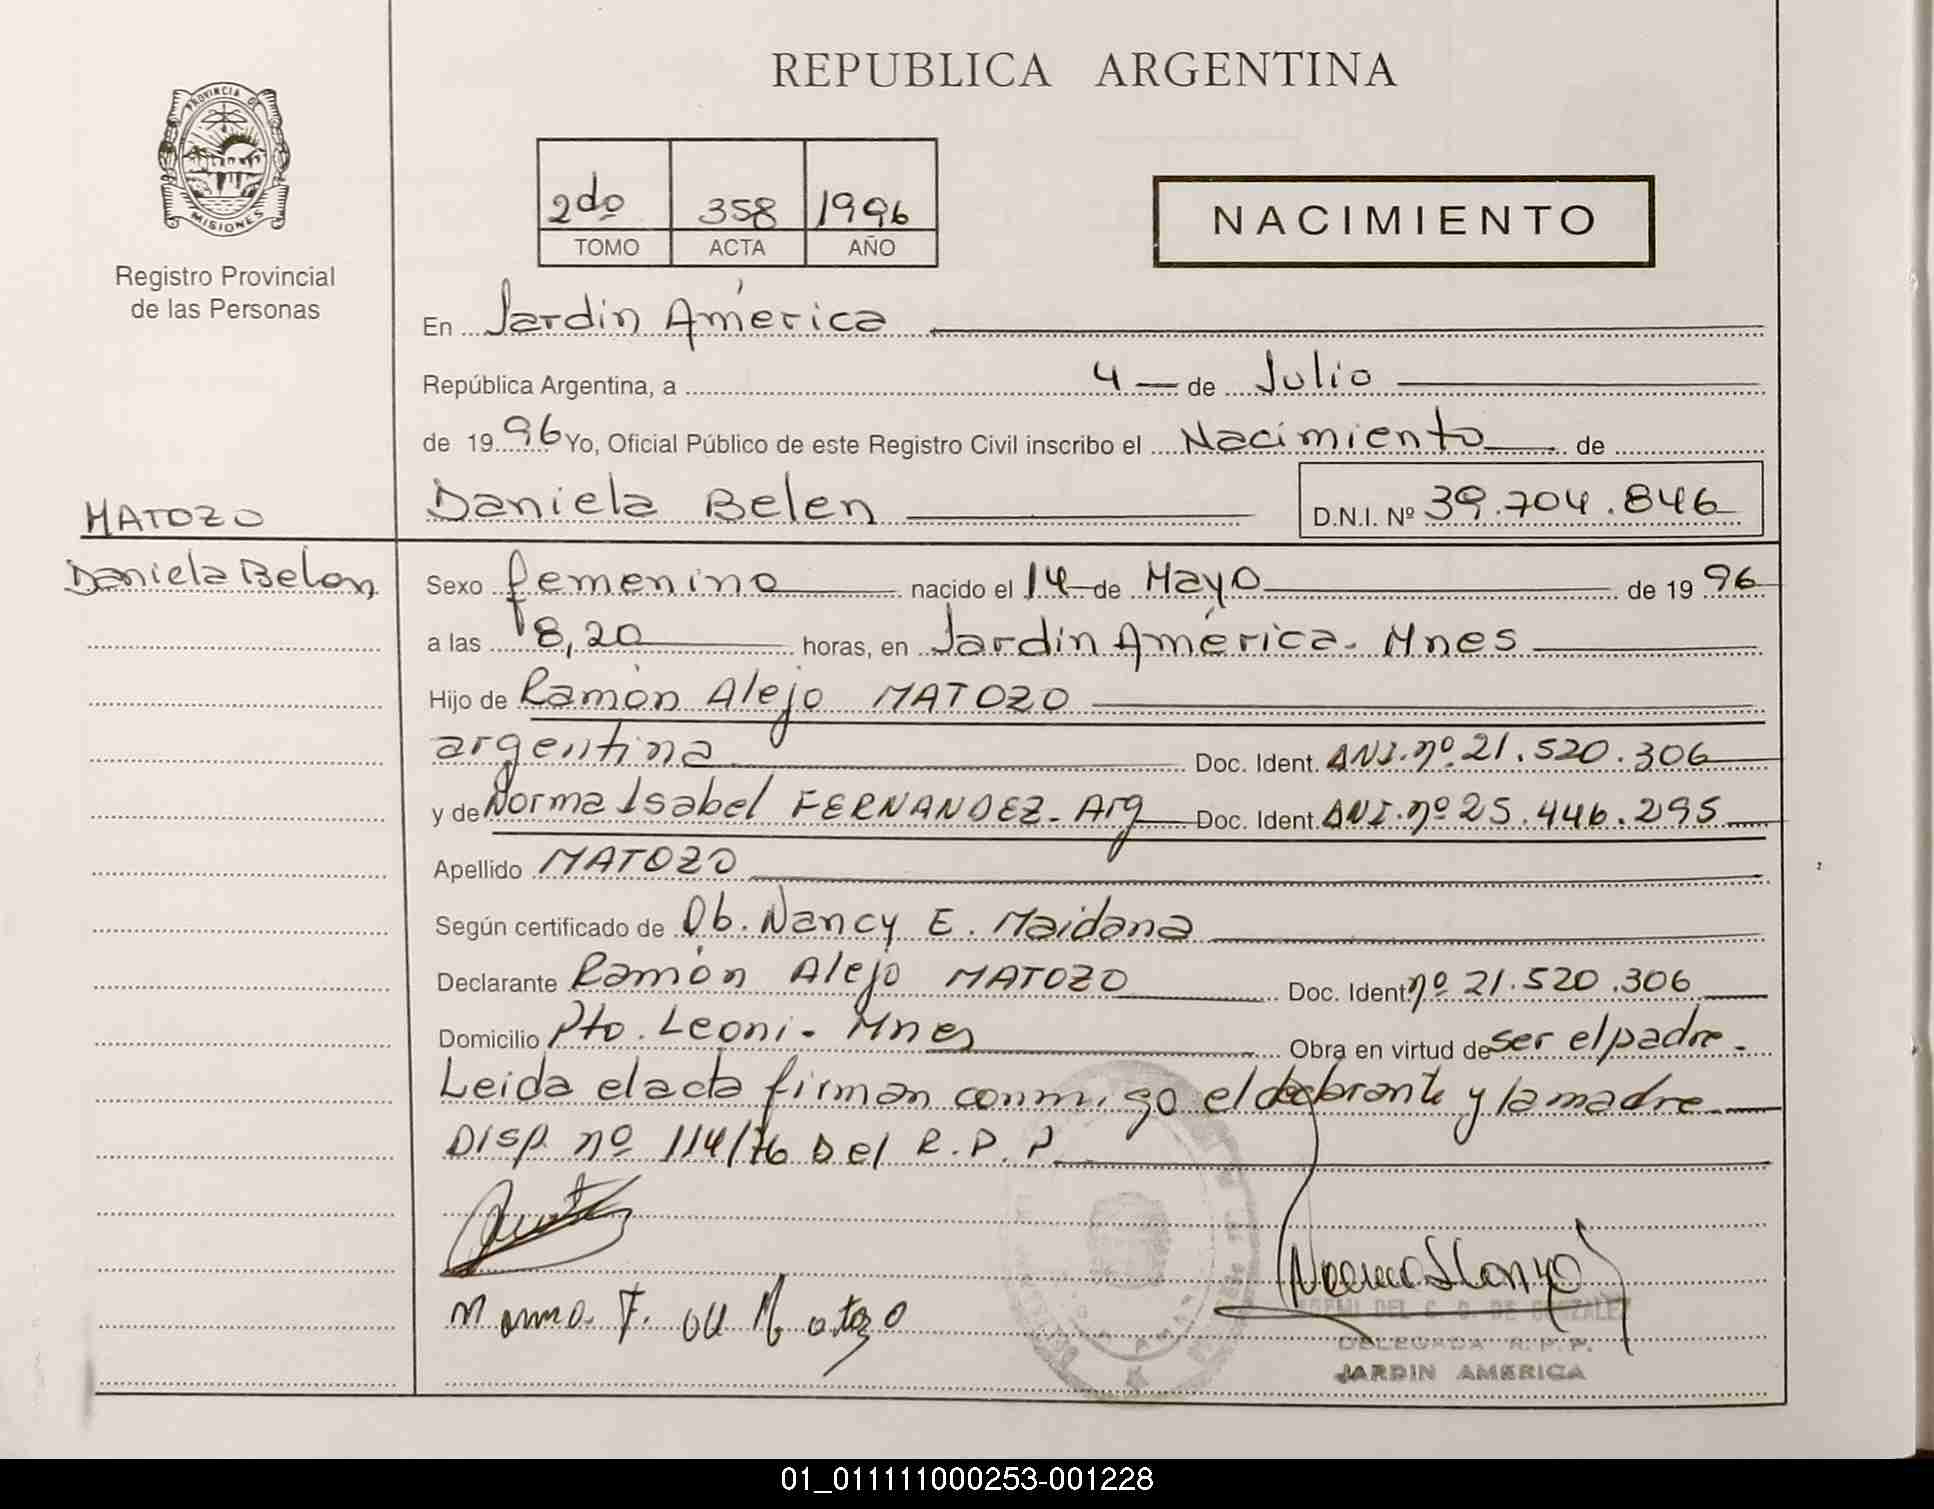 REPUBLICA ARGENTINA
PROVINCIA DE
MISIONES
Registro Provincial
de las Personas
2do 358 1996
TOMO ACTA AÑO
NACIMIENTO
En Jardin América
República Argentina, a 4 de Julio
de 1996 Yo, Oficial Público de este Registro Civil inscribo el Nacimiento de
MATOZO
Daniela Belen
Daniela Belen D.N.I. Nº 39.704.846
Sexo femenino nacido el 14 de Mayo de 1996
a las 8,20 horas, en Jardin América. Mnes
Hijo de Ramón Alejo MATOZO
argentina Doc. Ident. DNI. nº 21.520.306
y de Norma Isabel FERNANDEZ - Arg Doc. Ident. DNI. nº 25.446.295
Apellido MATOZO
Según certificado de Ob. Nancy E. Maidana
Declarante Ramón Alejo MATOZO Doc. Ident. nº 21.520.306
Domicilio Pto. Leoni - Mnes Obra en virtud de ser el padre.
Leida el acta firman conmigo el declarante y la madre
Disp. nº 114/76 Del R.P.P.
DE GONZALEZ
DELEGADA R.P.P.
JARDIN AMERICA
01_011111000253-001228